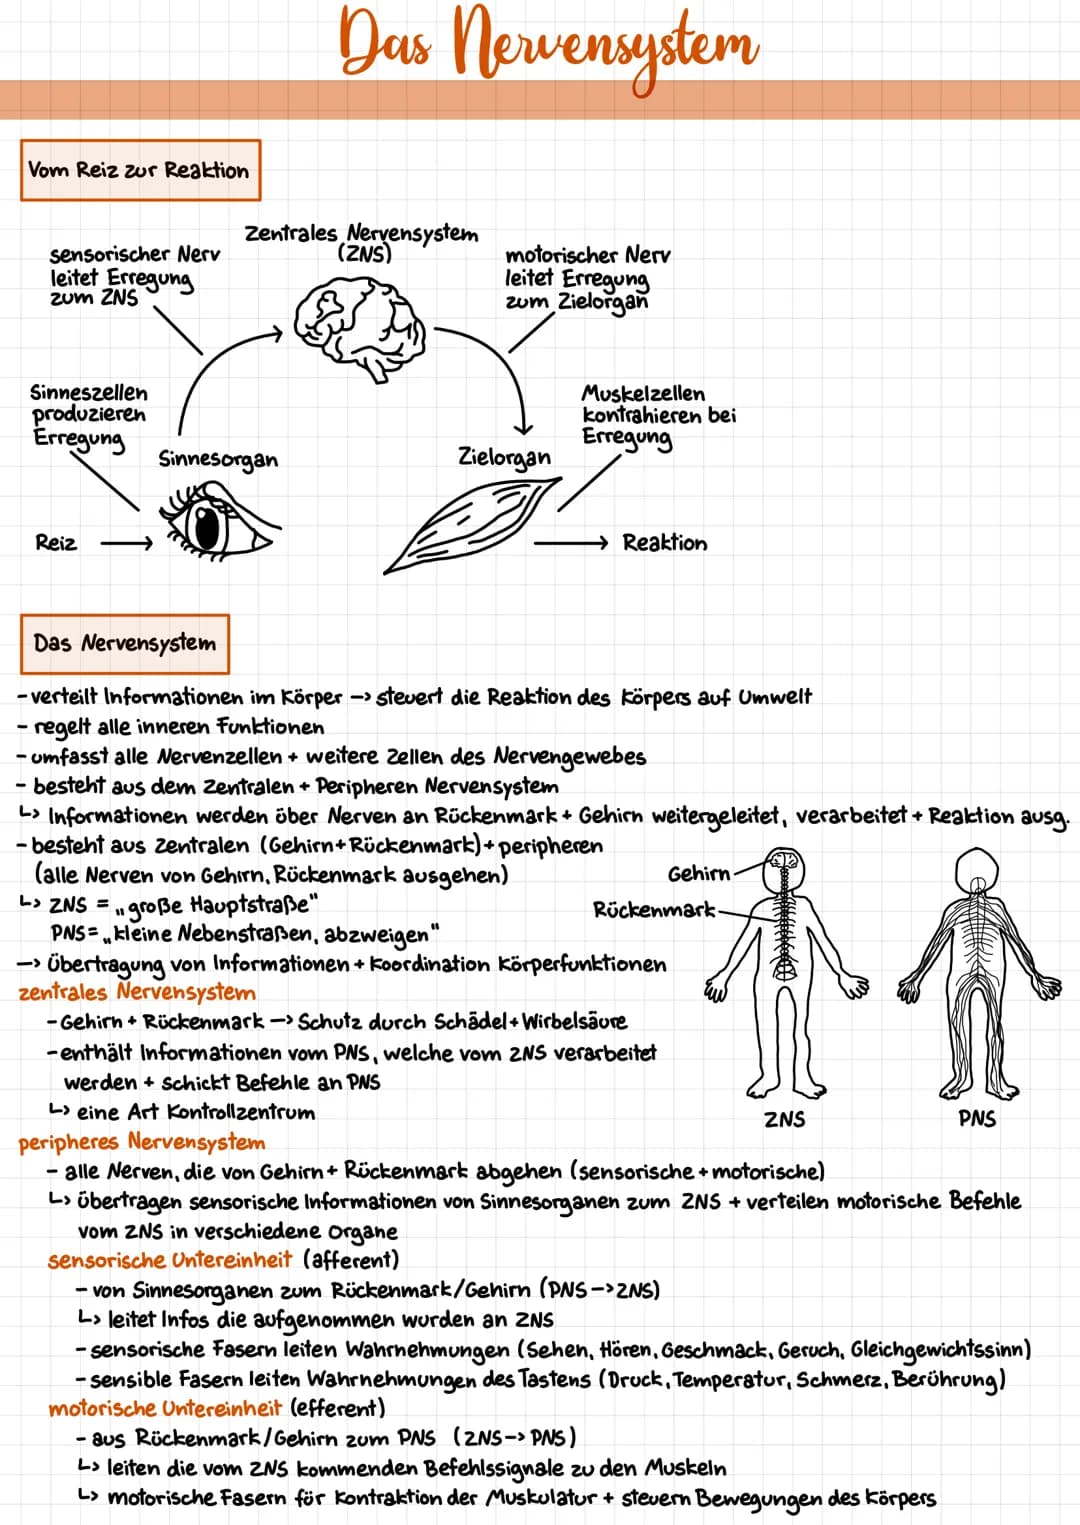 Das Nervensystem
Vom Reiz zur Reaktion
Zentrales Nervensystem
(ZNS)
sensorischer Nerv
leitet Erregung
zum ZNS
motorischer Nerv
leitet Erregung
zum Zielorgan
Sinneszellen
produzieren
Erregung
Sinnesorgan
Muskelzellen
kontrahieren bei
Erregung
Zielorgan
Reiz →
→ Reaktion
Das Nervensystem
- verteilt Informationen im Körper -> steuert die Reaktion des Körpers auf Umwelt
- regelt alle inneren Funktionen
- umfasst alle Nervenzellen + weitere Zellen des Nervengewebes
- besteht aus dem Zentralen + Peripheren Nervensystem
↳ Informationen werden über Nerven an Rückenmark + Gehirn weitergeleitet, verarbeitet + Reaktion ausg.
- besteht aus Zentralen (Gehirn+Rückenmark)+peripheren
(alle Nerven von Gehirn, Rückenmark ausgehen)
Gehirn
↳ ZNS = „große Hauptstraße"
Rückenmark
PNS= „kleine Nebenstraßen, abzweigen"
-> Übertragung von Informationen + Koordination Körperfunktionen
zentrales Nervensystem
- Gehirn + Rückenmark -> Schutz durch Schädel+Wirbelsäure
- enthält Informationen vom PNS, welche vom ZNS verarbeitet
werden + schickt Befehle an PNS
↳ eine Art Kontrollzentrum
ZNS
PNS
peripheres Nervensystem
- alle Nerven, die von Gehirn+ Rückenmark abgehen (sensorische + motorische)
↳ übertragen sensorische Informationen von Sinnesorganen zum ZNS + verteilen motorische Befehle
vom ZNS in verschiedene Organe
sensorische Untereinheit (afferent)
- von Sinnesorganen zum Rückenmark/Gehirn (PNS->ZNS)
↳ leitet Infos die aufgenommen wurden an ZNS
- sensorische Fasern leiten Wahrnehmungen (Sehen, Hören, Geschmack, Geruch, Gleichgewichtssinn)
- sensible Fasern leiten Wahrnehmungen des Tastens (Druck, Temperatur, Schmerz, Berührung)
motorische Untereinheit (efferent)
- aus Rückenmark/Gehirn zum PNS (ZNS-> PNS)
↳ leiten die vom ZNS kommenden Befehlssignale zu den Muskeln
↳ motorische Fasern für Kontraktion der Muskulatur + steuern Bewegungen des Körpers